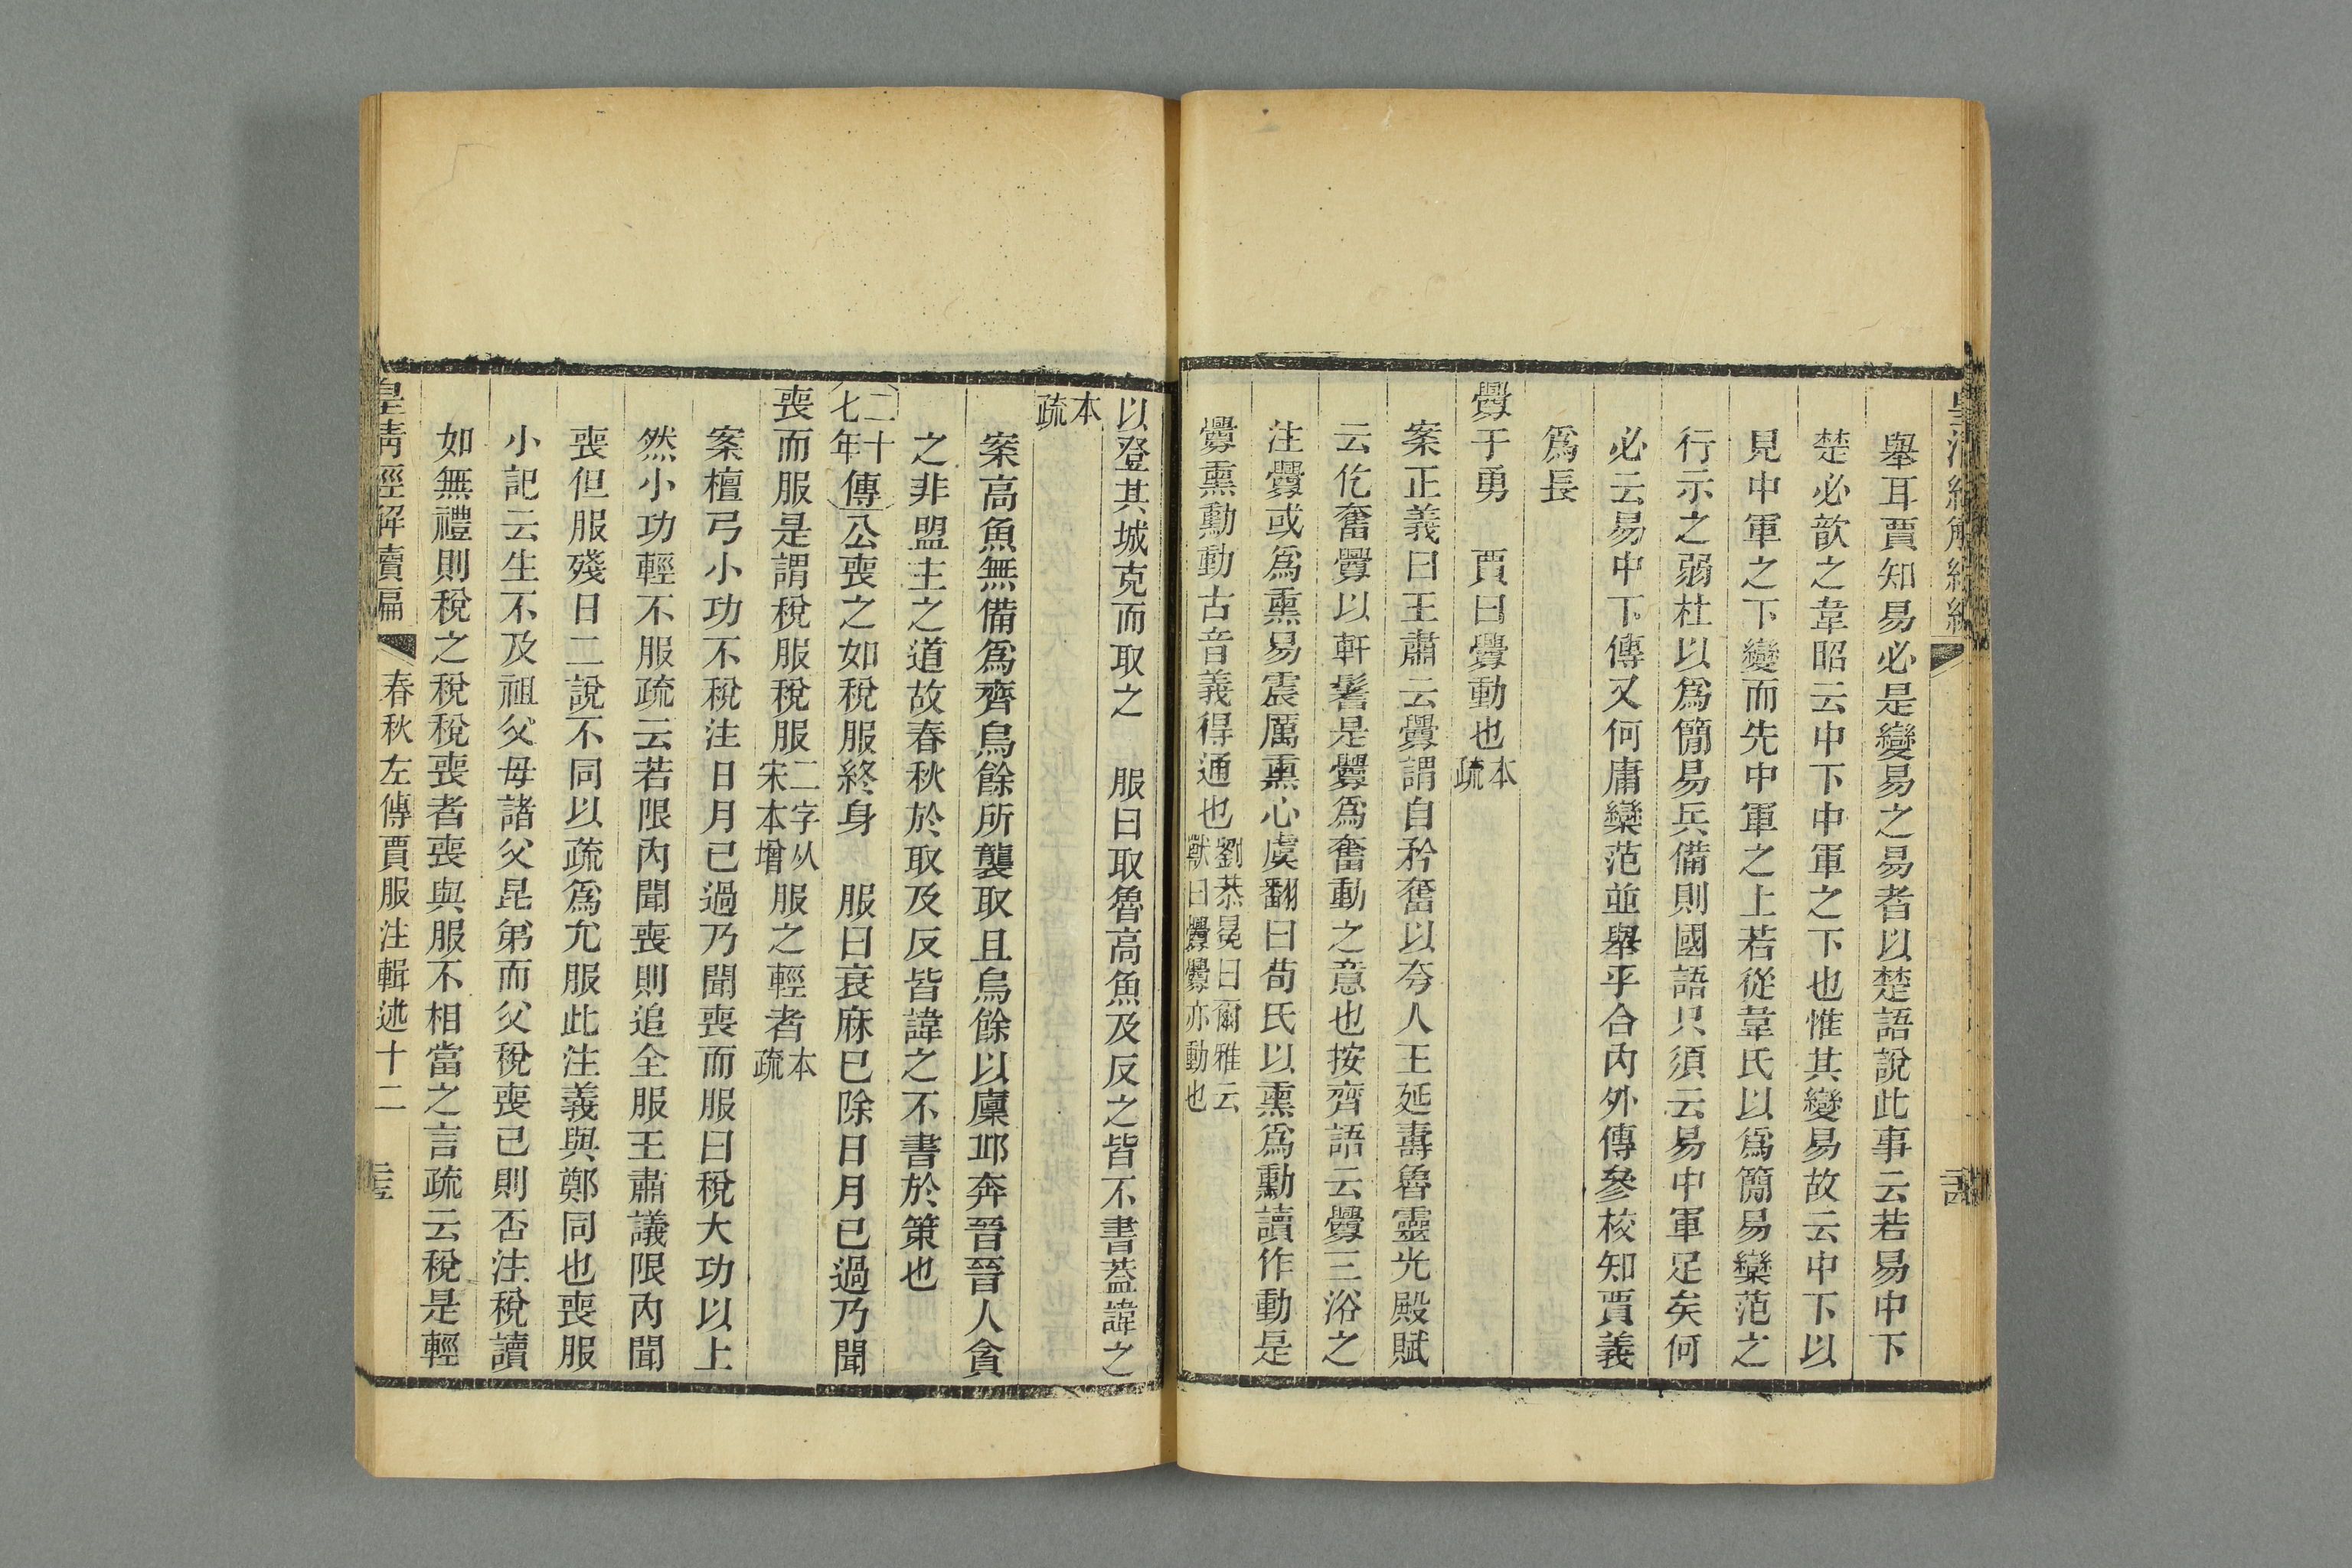 皇清經解續編
舉耳賈知易必是變易之易者以楚語說此事云若易中下
楚必歆之韋昭云中下中軍之下也惟其變易故云中下以
見中軍之下變而先中軍之上若從韋氏以爲簡易欒范之
行示之弱杜以爲簡易兵備則國語只須云易中軍足矣何
必云易中下傳又何庸欒范並舉乎合內外傳參校知賈義
爲長
釁于勇　賈曰釁動也本疏
案正義曰王肅云釁謂自矜奮以夸人王延壽魯靈光殿賦
云仡奮釁以軒鬐是釁爲奮動之意也按齊語云釁三浴之
注釁或爲熏易震厲熏心虞翻曰荀氏以熏爲勳讀作動是
釁熏勳動古音義得通也劉恭冕曰爾雅云獸曰釁釁亦動也
以登其城克而取之　服曰取魯高魚及反之皆不書葢諱之
本疏
案高魚無備爲齊烏餘所襲取且烏餘以廩邱奔晉晉人貪
之非盟主之道故春秋於取及反皆諱之不書於策也
二十七年傳公喪之如稅服終身　服曰衰麻已除日月已過乃聞
喪而服是謂稅服稅服二字从宋本增服之輕者本疏
案檀弓小功不稅注日月已過乃聞喪而服曰稅大功以上
然小功輕不服疏云若限內聞喪則追全服王肅議限內聞
喪但服殘日二說不同以疏爲允服此注義與鄭同也喪服
小記云生不及祖父母諸父昆弟而父稅喪己則否注稅讀
如無禮則稅之稅稅喪者喪與服不相當之言疏云稅是輕
皇清經解續編　春秋左傳賈服注輯述十二